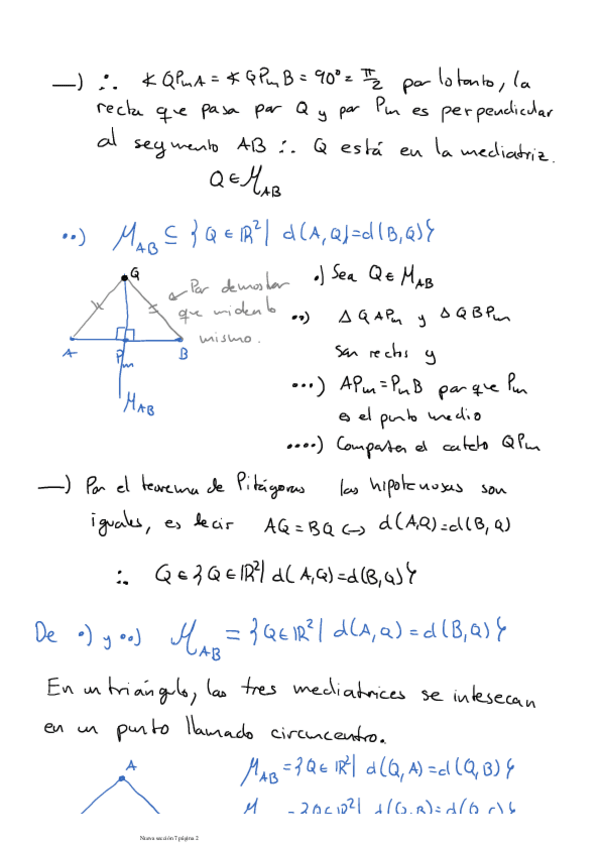 —) ∴ ∢ QPmA = ∢ QPmB = 90° = π/2 por lo tanto, la
recta que pasa por Q y por Pm es perpendicular
al segmento AB ∴ Q está en la mediatriz.
Q ∈ M_AB
••) M_AB ⊆ { Q ∈ ℝ² | d(A,Q)=d(B,Q)}
Q
Por demostrar
que miden lo
mismo.
A
Pm
B
M_AB
•) Sea Q ∈ M_AB
••) Δ QAPm y Δ QBPm
son rects y
•••) APm = PmB porque Pm
es el punto medio
••••) Comparten el cateto QPm
—) Por el teorema de Pitágoras las hipotenusas son
iguales, es decir AQ = BQ ↔ d(A,Q)=d(B,Q)
∴ Q ∈ { Q ∈ ℝ² | d(A,Q)=d(B,Q)}
De •) y ••) M_AB = { Q ∈ ℝ² | d(A,Q) = d(B,Q)}
En un triángulo, las tres mediatrices se intesecan
en un punto llamado circuncentro.
A
M_AB = { Q ∈ ℝ² | d(Q,A) = d(Q,B)}
Nueva sección 7 página 2